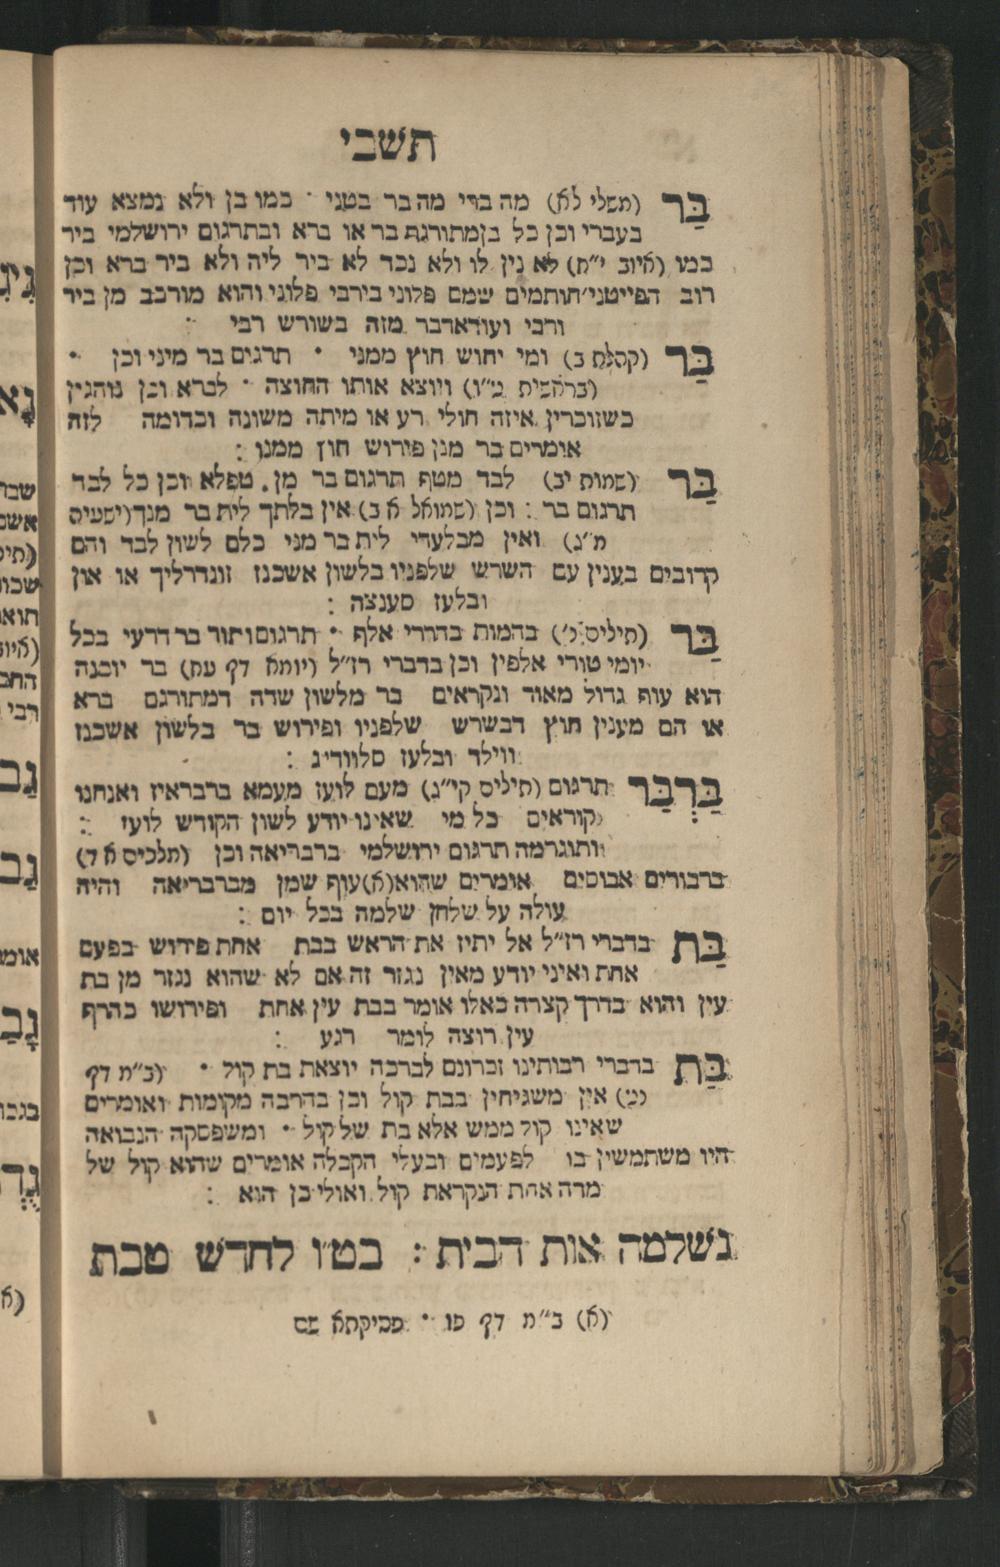 תשבי
בַּר (משלי לא) מה ברי מה בר בטני · כמו בן ולא נמצא עוד
בעברי וכן כל בן מתורגם בר או ברא ובתרגום ירושלמי ביר
כמו (איוב י״ח) לא נין לו ולא נכד לא ביר ליה ולא ביר ברא וכן
רוב הפייטני׳ חותמים שמם פלוני בירבי פלוני והוא מורכב מן ביר
ורבי ועוד ארבר מזה בשורש רבי :
בַּר (קהלת ב) ומי יחוש חוץ ממני · תרגום בר מיני וכן ·
(בראשית ט״ו) ויוצא אותו החוצה · לברא וכן נוהגין
כשזוכרין איזה חולי רע או מיתה משונה וכדומה לזה
אומרים בר מנן פירוש חוץ ממנו :
בַּר (שמות יב) לבד מטף תרגום בר מן טפלא וכן כל לבד
תרגום בר : וכן (שמואל א ב) אין בלתך לית בר מנך (ישעיה
מ״ג) ואין מבלעדי לית בר מני כלם לשון לבד והם
קרובים בענין עם השרש שלפניו בלשון אשכנז זונדרליך או און
ובלעז סענצה :
בַּר (תילים נ׳) בהמות בהררי אלף · תרגום ותור בר דרעי בכל
יומי טורי אלפין וכן בדברי רז״ל (יומא דף עח) בר יוכנה
הוא עוף גדול מאוד ונקראים בר מלשון שדה דמתורגם ברא
או הם מענין חוץ דבשרש שלפניו ופירוש בר בלשון אשכנז
ווילד ובלעז סלווריג :
בַּרְבַּר תרגום (תילים קי״ג) מעם לועז מעמא ברבראיז ואנחנו
קוראים כל מי שאינו יודע לשון הקודש לועז :
ותוגרמה תרגום ירושלמי ברבריאה וכן (מלכים א ד)
ברבורים אבוסים אומרים שהוא (א) עוף שמן מברבריאה והיה
עולה על שלחן שלמה בכל יום :
בַּת בדברי רז״ל אל יתיז את הראש בבת אחת פירוש בפעם
אחת ואיני יודע מאין נגזר זה אם לא שהוא נגזר מן בת
עין והוא בדרך קצרה כאלו אומר בבת עין אחת ופירושו כהרף
עין רוצה לומר רגע :
בַּת בדברי רבותינו זכרונם לברכה יוצאת בת קול · (ב״מ דף
נט) אין משגיחין בבת קול וכן בהרבה מקומות ואומרים
שאינו קול ממש אלא בת של קול · ומשפסקה הנבואה
היו משתמשין בו לפעמים ובעלי הקבלה אומרים שהוא קול של
מרה אחת הנקראת קול ואולי כן הוא :
נשלמה אות הבית : בט״ו לחדש טבת
(א) ב״מ דף פו · פסיקתא שם